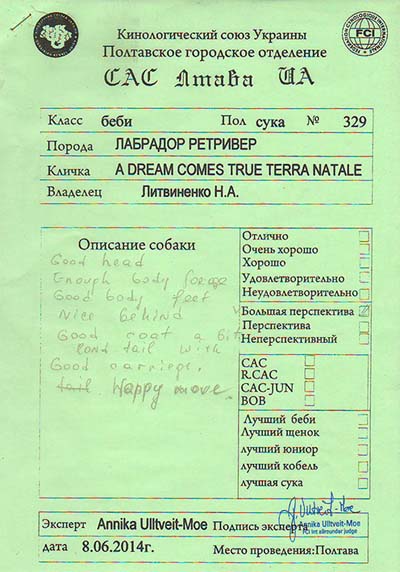 Кинологический союз Украины
Полтавское городское отделение
САС Лтава UA
FCI
Класс беби Пол сука № 329
Порода ЛАБРАДОР РЕТРИВЕР
Кличка A DREAM COMES TRUE TERRA NATALE
Владелец Литвиненко Н.А.
Описание собаки
Good head
Enough body
Good body feet
Nice behind
Good coat a bit
tail with
Good
tail. Happy move.
Отлично
Очень хорошо
Хорошо
Удовлетворительно
Неудовлетворительно
Большая перспектива
Перспектива
Неперспективный
CAC
R.CAC
CAC-JUN
BOB
Лучший беби
Лучший щенок
лучший юниор
лучший кобель
лучшая сука
Эксперт Annika Ulltveit-Moe Подпись эксперта
Annika Ulltveit-Moe
FCI Int allrounder judge
дата 8.06.2014г. Место проведения:Полтава